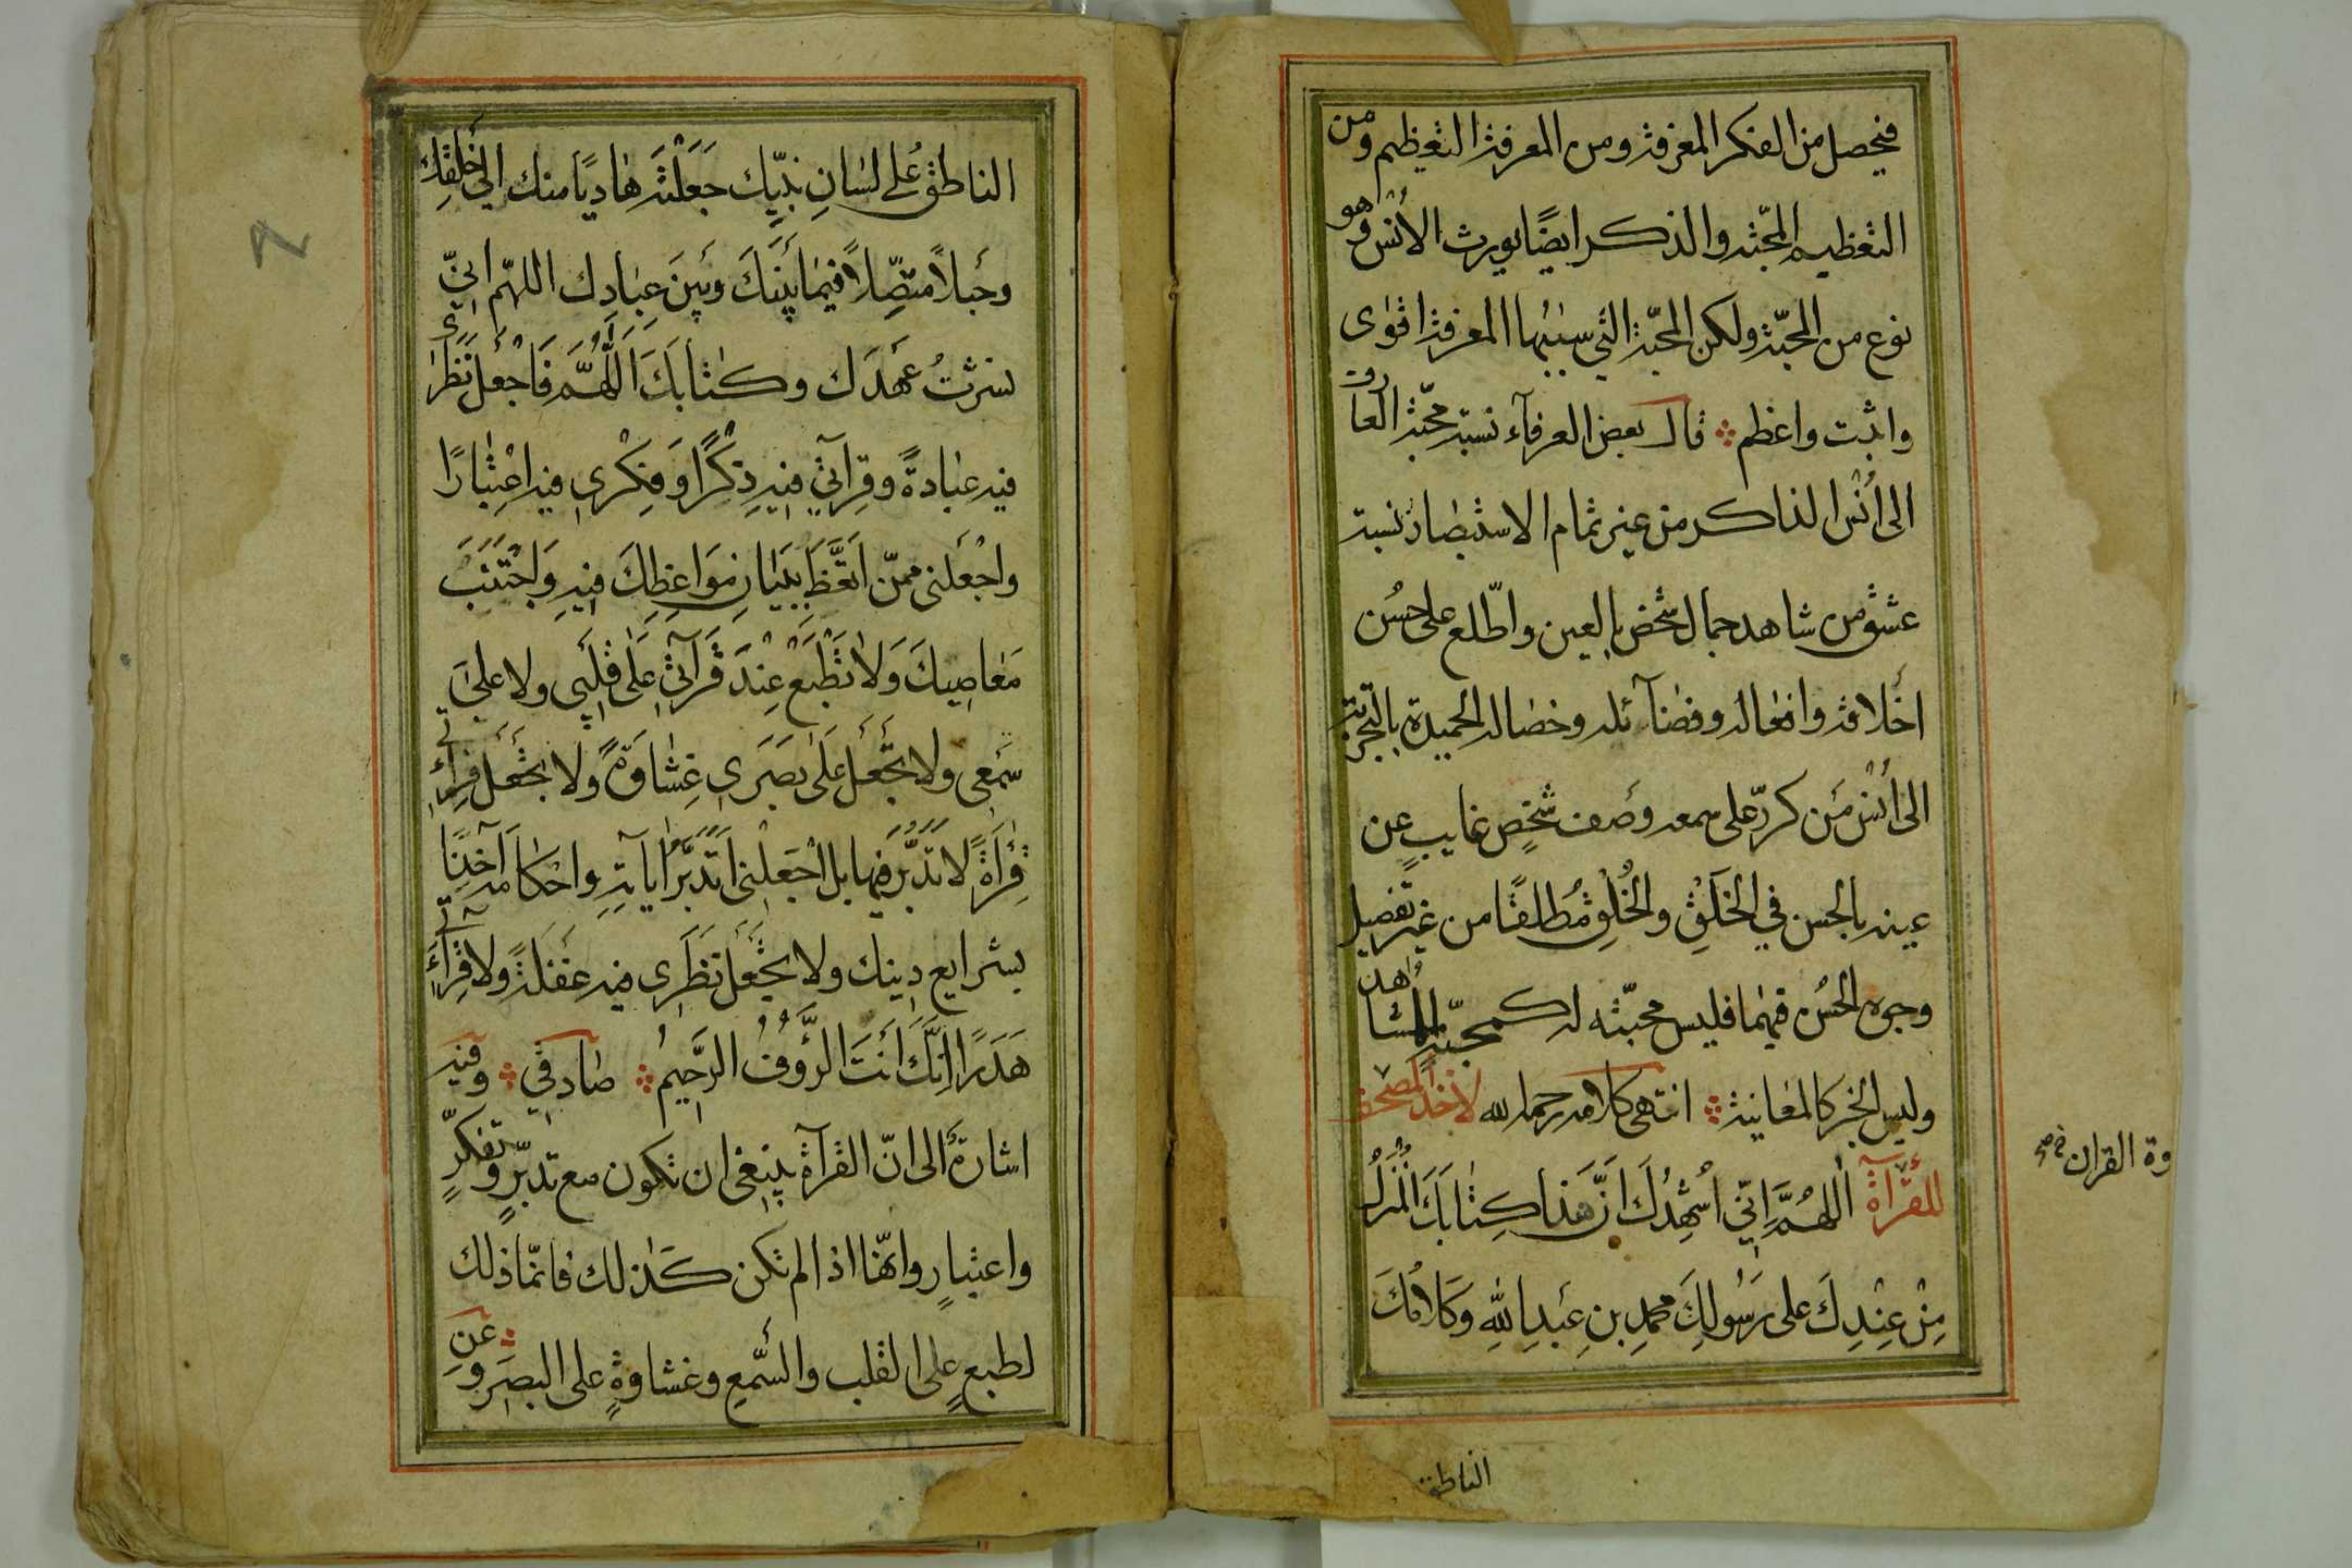 فيحصل من الفكر المعرفة ومن المعرفة التعظيم ومن
التعظيم المحبّة والذكر ايضًا يورث الأُنْس وهو
نوع من المحبّة ولكن المحبّة التي سببُها المعرفة اقوى
واثبت واعظم قال بعض العرفآء نسبة محبّة العارف
الى أُنْس الذاكر من غير تمام الاستبصار نسبة
عشق من شاهد جمال شخص بالعين واطّلع على حُسن
اخلاقه وافعاله وفضآئله وخصاله الحميدة بالتجربة
الى أُنْس مَن كرّر على سمعه وصف شخصٍ غايبٍ عن
عينه بالحسن في الخَلْقِ والخُلْقِ مُطلقًا من غير تفصيل
وجوه الحُسن فيهما فليس محبّته له كمحبّة المشاهد
وليس الخبر كالمعاينة انتهى كلامه رحمه الله لأخذ المصحف
للقرآءة اَللّهُمَّ اِنّي اُشْهِدُكَ اَنَّ هَذا كِتابَكَ المُنْزَلُ
مِنْ عِنْدِكَ على رَسُولِكَ محمدِ بنِ عَبدِاللهِ وَكَلامُكَ
وة القران خ ص
الناطق
الناطق عَلى لِسَانِ نبِيّك جَعَلْتَه هَاديًا منك الى خلقِك
وحَبلاً متصِّلاً فيمَا بَيْنَكَ وبَينَ عِبَادِك اللهّم انيّ
نشرتُ عَهَدَك وكتابَكَ اَللَّهُمَّ فَاجْعل نَظَرى
فيه عبادةً وقِرآئتي فيهِ ذِكْرًا وَفِكْرى فيه اعْتِبَارًا
واجْعَلنى ممّن اتَّعَظَ بِبَيَانِ مَوَاعِظِكَ فيهِ وَاجْتَنَبَ
مَعَاصِيكَ وَلا تَطْبَعْ عِنْدَ قَرآئتي عَلَى قَلْبِي ولا على
سَمْعِى ولا تَجْعَل عَلَى بَصَرى غِشَاوَةً ولا تَجْعَل قِرائَتي
قِرَاءَةً لا تَدَبُّرَ فيها بل اجْعَلْنى اَتَدَبَّرُ آيَاتِهِ واحْكامَه آخِذًا
بشرايع دِينك ولا تَجْعَل نَظَرى فيه غَفْلَةً ولا قِرآئَتي
هَذَرًا اِنَّكَ اَنْتَ الرَّؤُوفُ الرَّحِيمُ صَادقي وفيه
اشارةٌ الى انّ القرآءة ينبغى ان تكون مع تدبّرٍ وتفكّرٍ
واعتبارٍ وانهّا اذا لم تكن كذلك فانمّا ذلك
لطبعٍ على القلب والسَّمعِ وغشاوةٍ على البصَرِ وعن